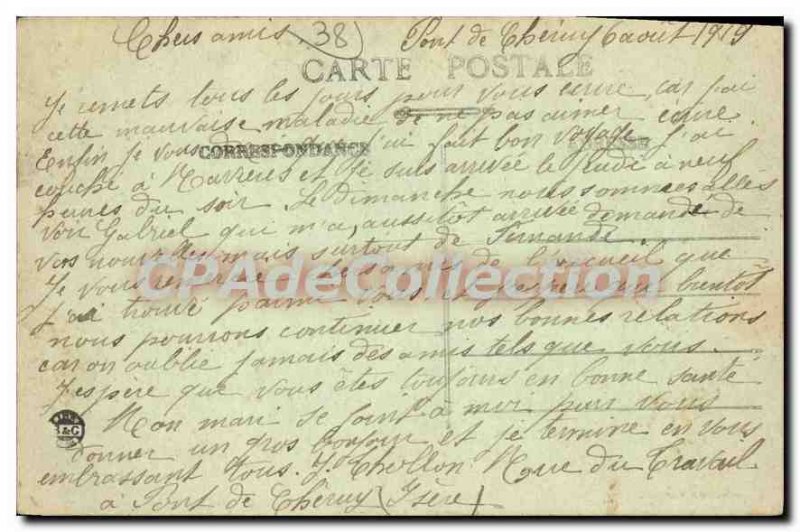 Chers amis 38 Pont de Chéruy 6 août 1919
CARTE POSTALE
Je remets tous les jours pour vous écrire, car j'ai
cette mauvaise maladie de ne pas aimer écrire
Enfin je vous j'ai fait bon voyage j'ai
CORRESPONDANCE ADRESSE
couché à et je suis arrivée le jeudi à neuf
heures du soir. Le dimanche nous sommes allés
voir Gabriel qui m'a, aussitôt arrivée demandé de
vos nouvelles mais surtout de Fernande.
Je vous remercie de l'accueil que
CPADeCollection.com
j'ai trouvé parmi vous et j'espère que bientôt
nous pourrons continuer nos bonnes relations
car on oublie jamais des amis tels que vous.
J'espère que vous êtes toujours en bonne santé
Mon mari se joint à moi pour vous
donner un gros bonjour et je termine en vous
embrassant tous. J. Chollon Rue du Travail
à Pont de Chéruy (Isère)